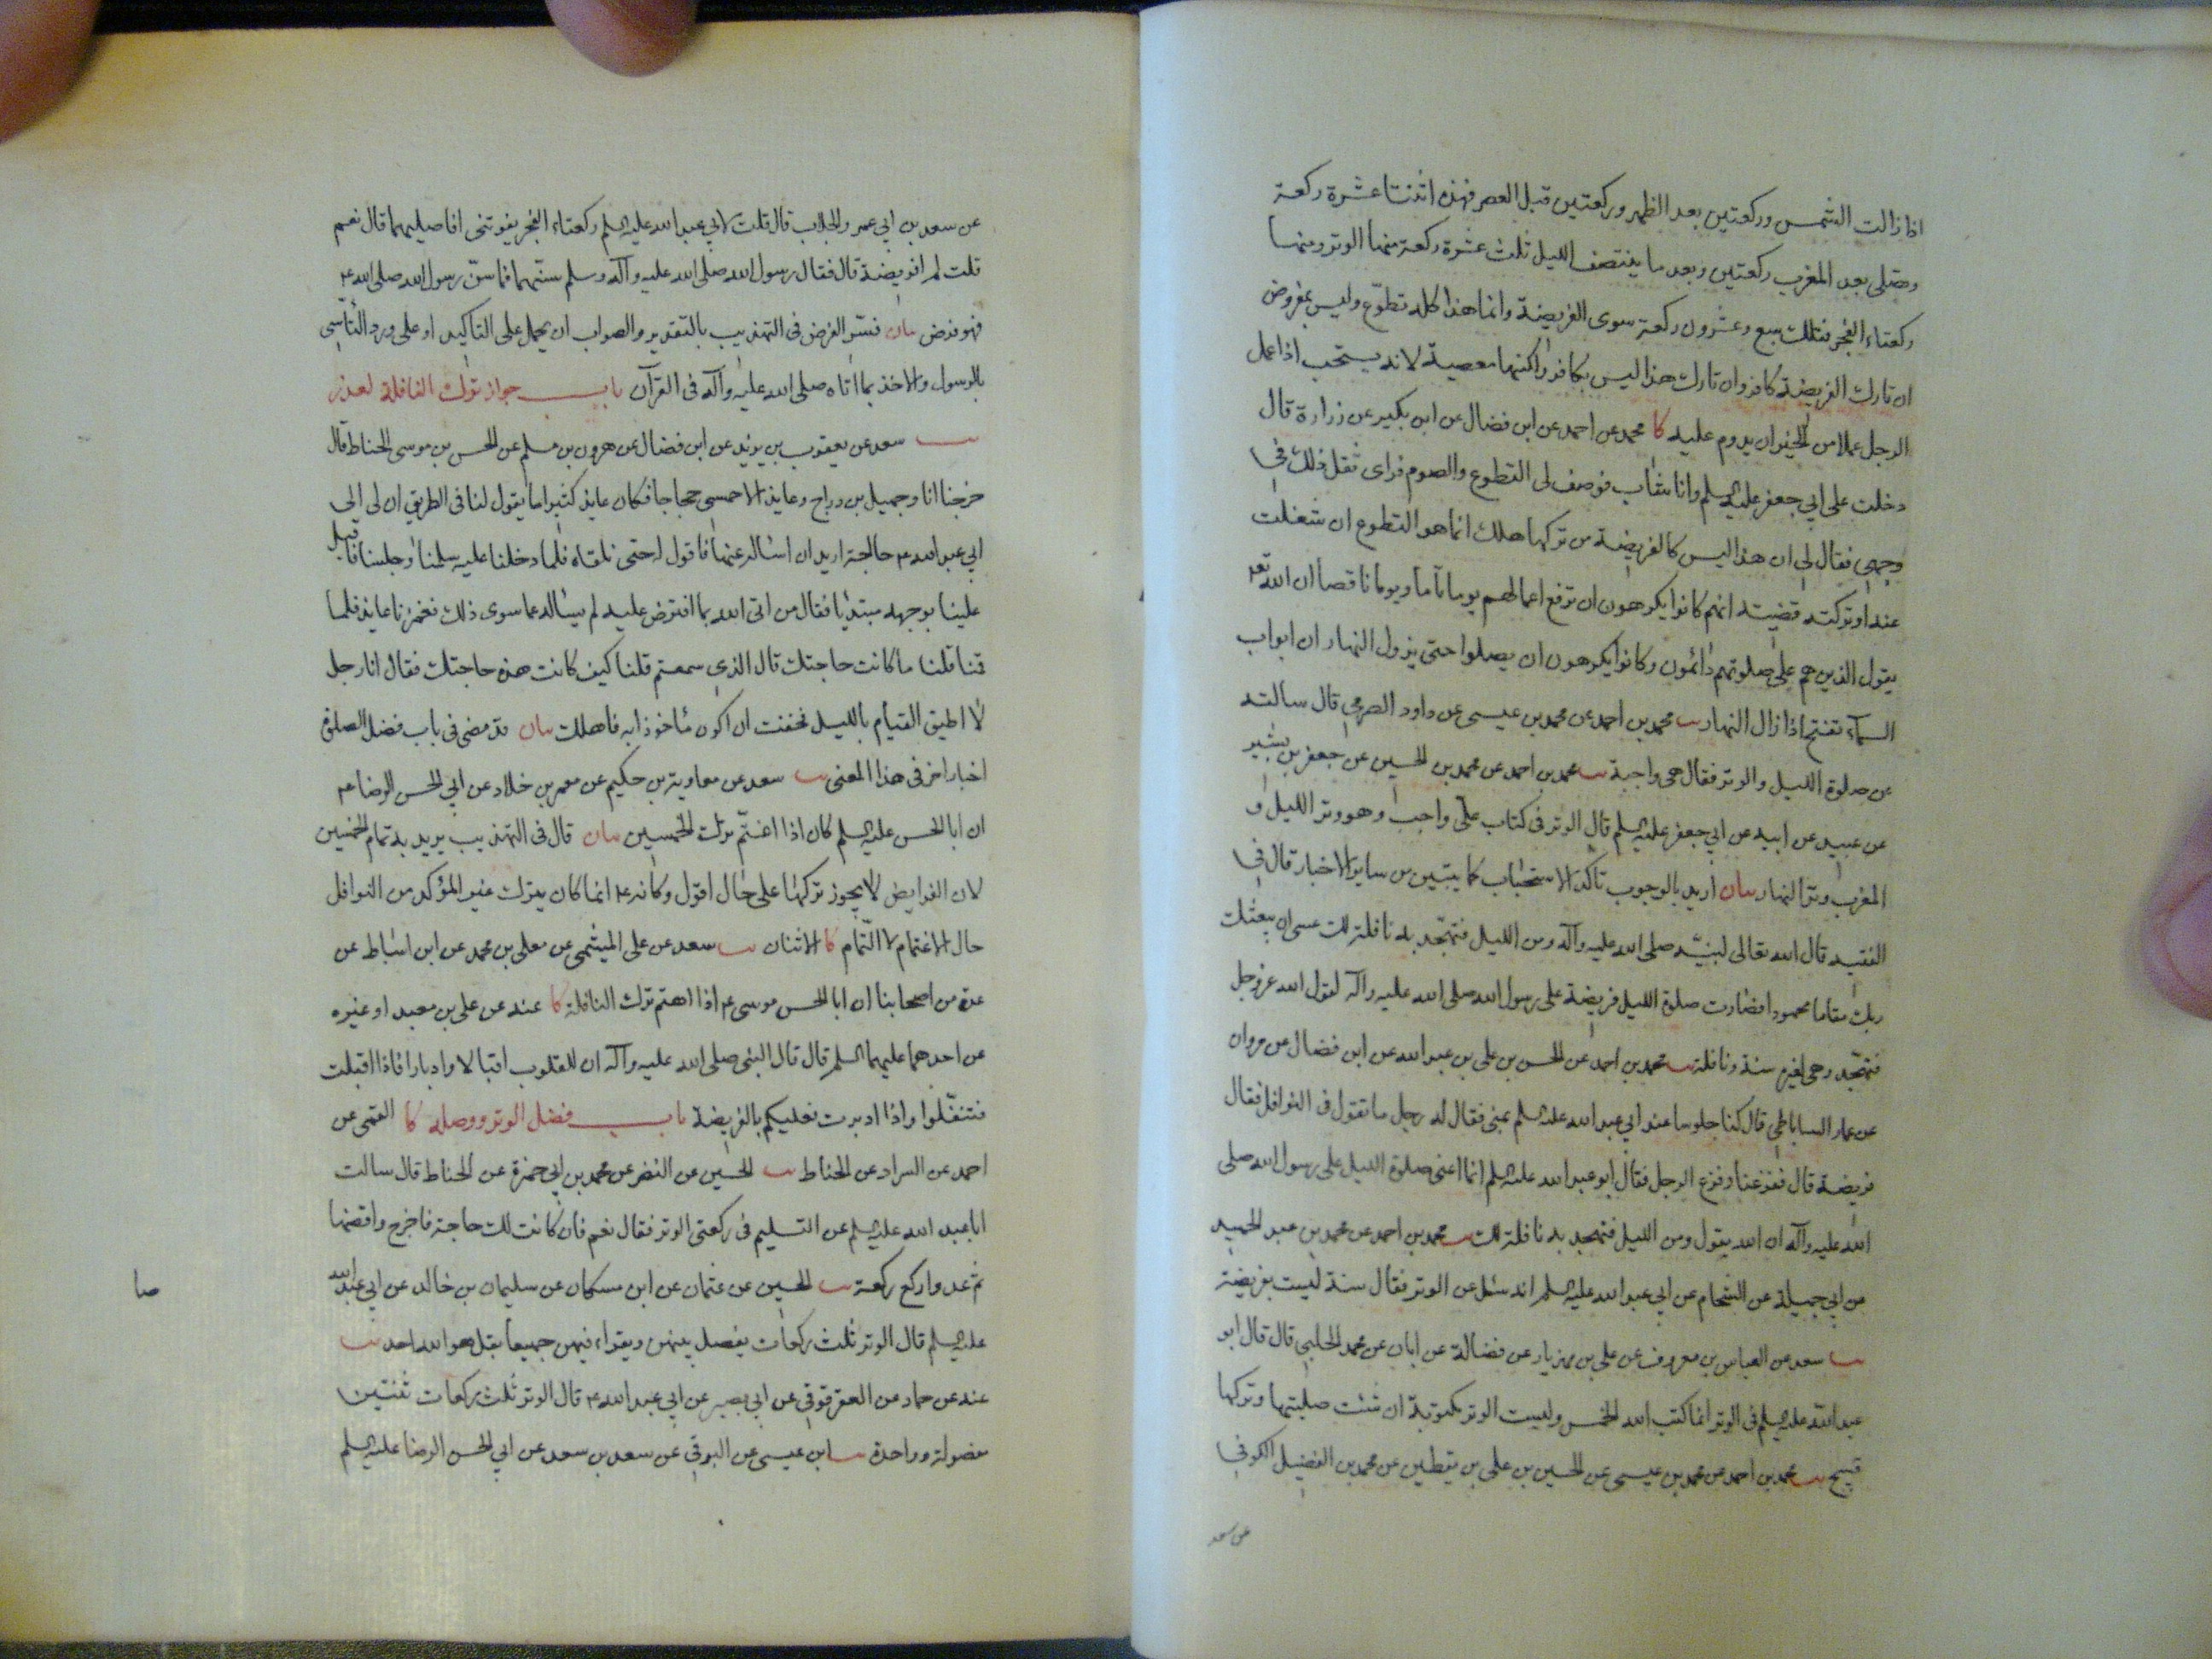 اذا زالت الشمس وركعتين بعد الظهر وركعتين قبل العصر فهذه اثنتا عشرة ركعة
وتصلى بعد المغرب ركعتين وبعد ما ينتصف الليل ثلث عشرة ركعة منها الوتر ومنها
ركعتاء الفجر فتلك سبع وعشرون ركعة سوى الفريضة وانما هذا كله تطوع وليس بمفروض
ان تارك الفريضة كافر وان تارك هذا ليس بكافر ولكنها معصية لانه يستحب اذا عمل
الرجل عملا من الخير ان يدوم عليه كا محمد عن احمد عن ابن فضال عن ابن بكير عن زرارة قال
دخلت على ابي جعفر عليه السلم وانا شاب فوصف لى التطوع والصوم فراى ثقل ذلك في
وجهى فقال لى ان هذا ليس كالفريضة من تركها هلك انما هو التطوع ان شغلت
عنه او تركته قضيته انهم كانوا يكرهون ان ترفع اعمالهم يوما تاما ويوما ناقصا ان الله تعـ
يقول الذين هم على صلوتهم دائمون وكانوا يكرهون ان يصلوا حتى يزول النهار ان ابواب
السماء تفتح اذا زال النهار يب محمد بن احمد عن محمد بن عيسى عن داود الصرمى قال سالته
عن صلوة الليل والوتر فقال هى واجبة يب محمد بن احمد عن محمد بن الحسين عن جعفر بن بشير
عن عبيد عن ابيه عن ابي جعفر عليه السلم قال الوتر فى كتاب على واجب وهو وتر الليل و
المغرب وتر النهار بيان اريد بالوجوب تاكد الاستحباب كما يتبين من ساير الاخبار قال في
الفقيه قال الله تعالى لنبيه صلى الله عليه وآله ومن الليل فتهجد به نافلة لك عسى ان يبعثك
ربك مقاما محمودا فصارت صلوة الليل فريضة على رسول الله صلى الله عليه وآله لقول الله عز وجل
فتهجد وهى لغيره سنة ونافلة يب محمد بن احمد عن الحسن بن على بن عبد الله عن ابن فضال عن مروان
عن عمار الساباطى قال كنا جلوسا عند ابي عبد الله عليه السلم بمنى فقال له رجل ما تقول فى النوافل فقال
فريضة قال ففزعنا وفزع الرجل فقال ابو عبد الله عليه السلم انما اعنى صلوة الليل على رسول الله صلى
الله عليه وآله ان الله يقول ومن الليل فتهجد به نافلة لك يب محمد بن احمد عن محمد بن عبد الحميد
عن ابي جميلة عن الشحام عن ابي عبد الله عليه السلم انه سئل عن الوتر فقال سنة ليست بفريضة
يب سعد عن العباس بن معروف عن على بن مهزيار عن فضالة عن ابان عن محمد الحلبي قال قال ابو
عبد الله عليه السلم فى الوتر انما كتب الله الخمس وليست الوتر مكتوبة ان شئت صليتها وتركها
قبيح يب محمد بن احمد عن محمد بن عيسى عن الحسين بن على بن يقطين عن محمد بن الفضيل الكوفي
عن سعد
عن سعد بن ابي عمرو الجلاب قال قلت لابي عبد الله عليه السلم ركعتاء الفجر يفوتنى افاصليهما قال نعم
قلت لم افريضة قال فقال رسول الله صلى الله عليه وآله وسلم سنهما فما سن رسول الله صلى الله عـ
فهو فرض بيان فسر الفرض فى التهذيب بالتقدير والصواب ان يحمل على التاكيد او على ورد التاسى
بالرسول والاخذ بما اتاه صلى الله عليه وآله فى القرآن باب جواز ترك النافلة لعذر
يب سعد عن يعقوب بن يزيد عن ابن فضال عن هرون بن مسلم عن الحسن بن موسى الحناط قال
خرجنا انا وجميل بن دراج وعايذ الاحمسى حجاجا فكان عايذ كثيرا ما يقول لنا فى الطريق ان لى الى
ابي عبد الله ع حاجة اريد ان اساله عنها فاقول له حتى نلقاه فلما دخلنا عليه سلمنا وجلسنا فاقبل
علينا بوجهه مبتديا فقال من اتى الله بما افترض عليه لم يساله عما سوى ذلك فغمزنا عايذ فلما
قمنا قلنا ما كانت حاجتك قال الذى سمعتم قلنا كيف كانت هذه حاجتك فقال انا رجل
لا اطيق القيام بالليل فخفت ان اكون ماخوذا به فاهلك بيان قد مضى فى باب فضل الصلوة
اخبار اخر فى هذا المعنى يب سعد عن معاوية بن حكيم عن معمر بن خلاد عن ابي الحسن الرضا ع
ان ابا الحسن عليه السلم كان اذا اغتم ترك الخمسين بيان قال فى التهذيب يريد به تمام الخمسين
لان الفرايض لا يجوز تركها على حال اقول وكانه ع انما كان يترك غير المؤكد من النوافل
حال الاغتمام لا التمام كا الاثنان يب سعد عن على الميثمى عن معلى بن محمد عن ابن اسباط عن
عدة من اصحابنا ان ابا الحسن موسى ع اذا اهتم ترك النافلة كا عنه عن على بن معبد او غيره
عن احدهما عليهما السلم قال قال النبى صلى الله عليه وآله ان للقلوب اقبالا وادبارا فاذا اقبلت
فتنفلوا واذا ادبرت فعليكم بالفريضة باب فضل الوتر ووصله كا القمى عن
احمد عن السراد عن الحناط يب الحسين عن النضر عن محمد بن ابي حمزة عن الحناط قال سالت
ابا عبد الله عليه السلم عن التسليم فى ركعتى الوتر فقال نعم فان كانت لك حاجة فاخرج واقضها
ثم عد واركع ركعة يب الحسين عن عثمان عن ابن مسكان عن سليمان بن خالد عن ابي عبد الله
عليه السلم قال الوتر ثلث ركعات يفصل بينهن ويقراء فيهن جميعا بقل هو الله احد يب
عنه عن حماد عن العقرقوفي عن ابي بصير عن ابي عبد الله ع قال الوتر ثلث ركعات ثنتين
مفصولة وواحدة يب ابن عيسى عن البرقى عن سعد بن سعد عن ابي الحسن الرضا عليه السلم
صا